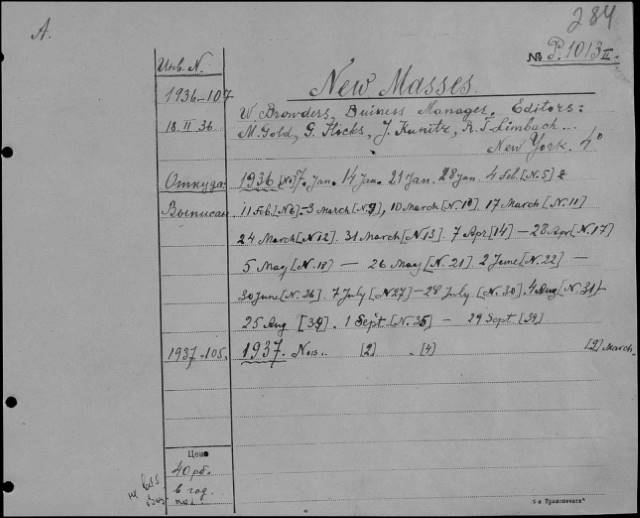 284
A.
№ P. 1013 II.
Инв. N.
New Masses.
1936-107
W Browders, Buiness Manager. Editors:
18. II 36
M. Gold, G. Hicks, J. Kunitz, R. F. Limbach...
New York. 4°
Откуда:
1936 [N.2] 7. Jan. 14 Jan. 21 Jan. 28 Jan. 4 Feb. [N.5]
Выписан
11 Feb. [N6]-3 March [N.9], 10 March [N.10] 17 March [N.11]
24 March [N12]. 31 March [N13]. 7 Apr [14] — 28 Apr [N.17]
5 May [N.18] — 26 May [N.21]. 2 June [N.22] —
30 June [N.26]. 7 July [N27] — 28 July [N.30]. 4 Aug [N.31]-
25 Aug [34]. 1 Sept. [N.35] — 29 Sept. [39]
1937-105.
1937. Nos. [2] . [4] [9] March.
Цена
40 рб.
в год.
5-я Транспечать